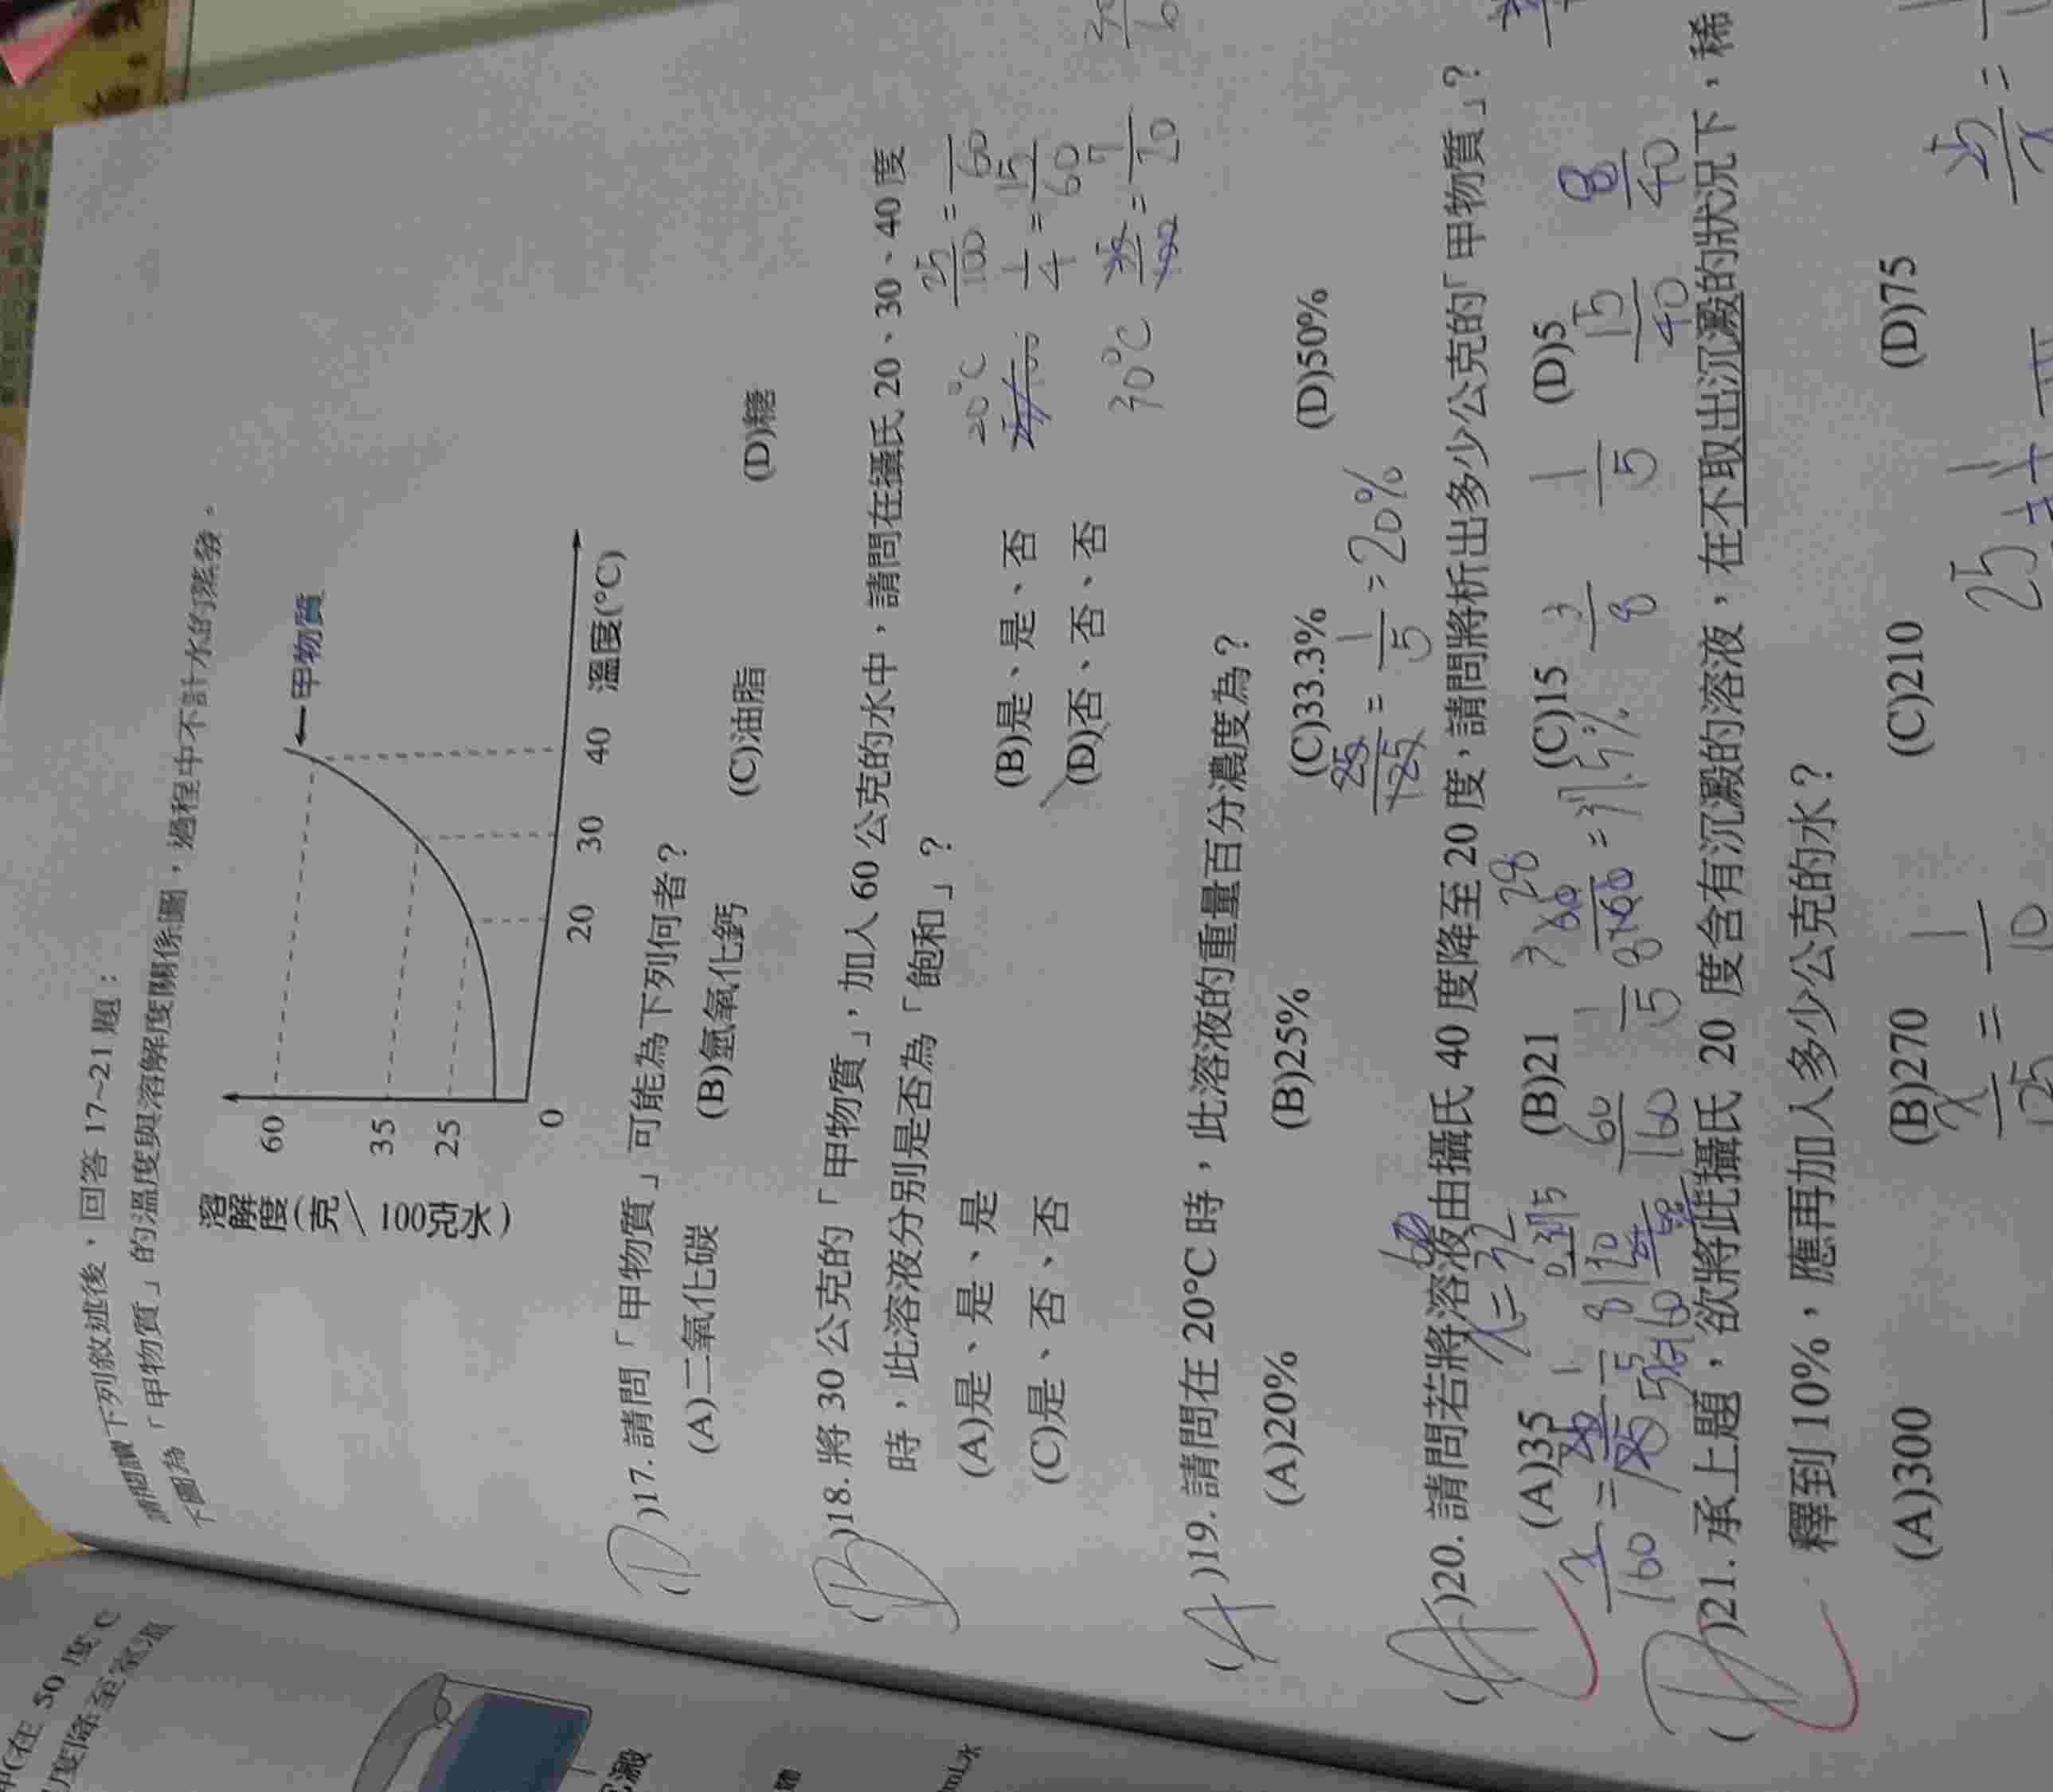 請閱讀下列敘述後，回答 17~21 題：
下圖為「甲物質」的溫度與溶解度關係圖，過程中不計水的蒸發。
溶解度(克\100克水)
60
35
25
0
20 30 40 溫度(°C)
甲物質
(D)17. 請問「甲物質」可能為下列何者？
(A)二氧化碳 (B)氫氧化鈣 (C)油脂 (D)糖
(B)18. 將 30 公克的「甲物質」，加入 60 公克的水中，請問在攝氏 20、30、40 度
時，此溶液分別是否為「飽和」？
(A)是、是、是 (B)是、是、否
(C)是、否、否 (D)否、否、否
20°C 25/100 =
1/4 = 15/60
30°C = 7/20
(A)19. 請問在 20°C 時，此溶液的重量百分濃度為？
(A)20% (B)25% (C)33.3% (D)50%
25/125 = 1/5 = 20%
()20. 請問若將溶液由攝氏 40 度降至 20 度，請問將析出多少公克的「甲物質」？
(A)35 (B)21 (C)15 (D)5
60/160 1/5 3/8 1/5 15/40 8/40
()21. 承上題，欲將此攝氏 20 度含有沉澱的溶液，在不取出沉澱的狀況下，稀
釋到 10%，應再加入多少公克的水？
(A)300 (B)270 (C)210 (D)75
x/125 = 1/10
(在 50 度 C
度降至室溫
沉澱
mL水